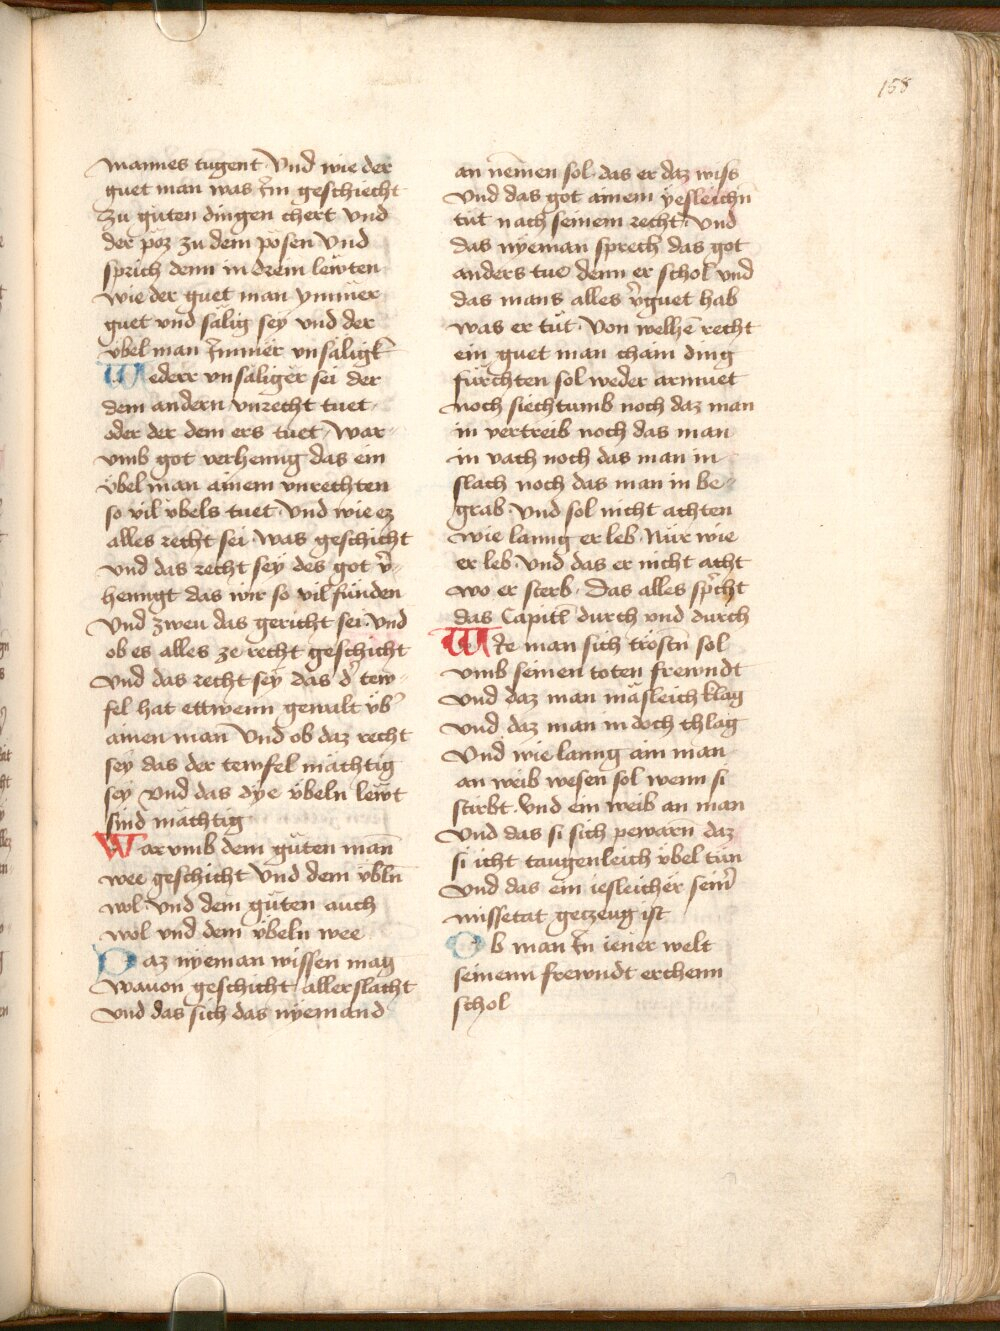 158
mannes tugent Vnd wie der
guet man was Im geschiecht
Zu gůten dingen chert vnd
der pőz zu dem pösen Vnd
sprich denn in drein lewten
wie der guet man ymmer
guet vnd sälig sey vnd der
vbel man Immer vnsäligk̄
Wederr vnsäliger sei der
dem andern vnrecht tuet
oder der dem ers tuet / War-
vmb got verhenng das ein
übel man ainem vnrechten
so vil vbels tuet Vnd wie ez
alles recht sei was geschicht
vnd das recht sey des got v̄-
henngt das wir so vil sünden
Vnd zweu das gericht sei Vnd
ob es alles ze recht geschicht
vnd das recht sey das d' tew-
fel hat ettwenn gewalt vb'
ainen man Vnd ob daz recht
sey das der tewfel mächtig
sey Vnd das dye übeln lewt
sind mächtig
Warvmb dem gůten man̄
wee geschicht Vnd dem vbl̄n
wol Vnd dem gůten auch
wol vnd dem vbeln wee
Daz nyeman wissen mag
wauon geschicht allerslacht
vnd das sich das nyemand
an nēmen sol das er daz wiss
Vnd das got ainem yesleichn̄
tůt nach seinem recht Vnd
das nyeman sprech das got
anders tue denn er schol vnd
das mans alles v̄guet hab
was er tůt Von welhē recht
ein guet man chain ding
fürchten sol weder armuet
noch siechtumb noch daz man
in vertreib noch das man
in vach noch das man in
slach noch das man in be-
grab Vnd sol nicht achten
wie lanng er leb Nůr wie
er leb Vnd das er nicht acht
wo er sterb Das alles sp̄cht
das Capitl̄ durch vnd durch
WIe man sich tröstn̄ sol
vmb seinen toten frewndt
vnd daz man mäsleich klag
vnd daz man in doch chlag
Vnd wie lanng ain man
an weib wesen sol wenn si
stirbt Vnd ein weib an man
Vnd das si sich pewarn̄ daz
si icht taugenleich vbel tün
Vnd das ein iesleicher sein̄
missetat getzeug ist
Ob man In iener welt
seinenn frewndt erchenn
schol